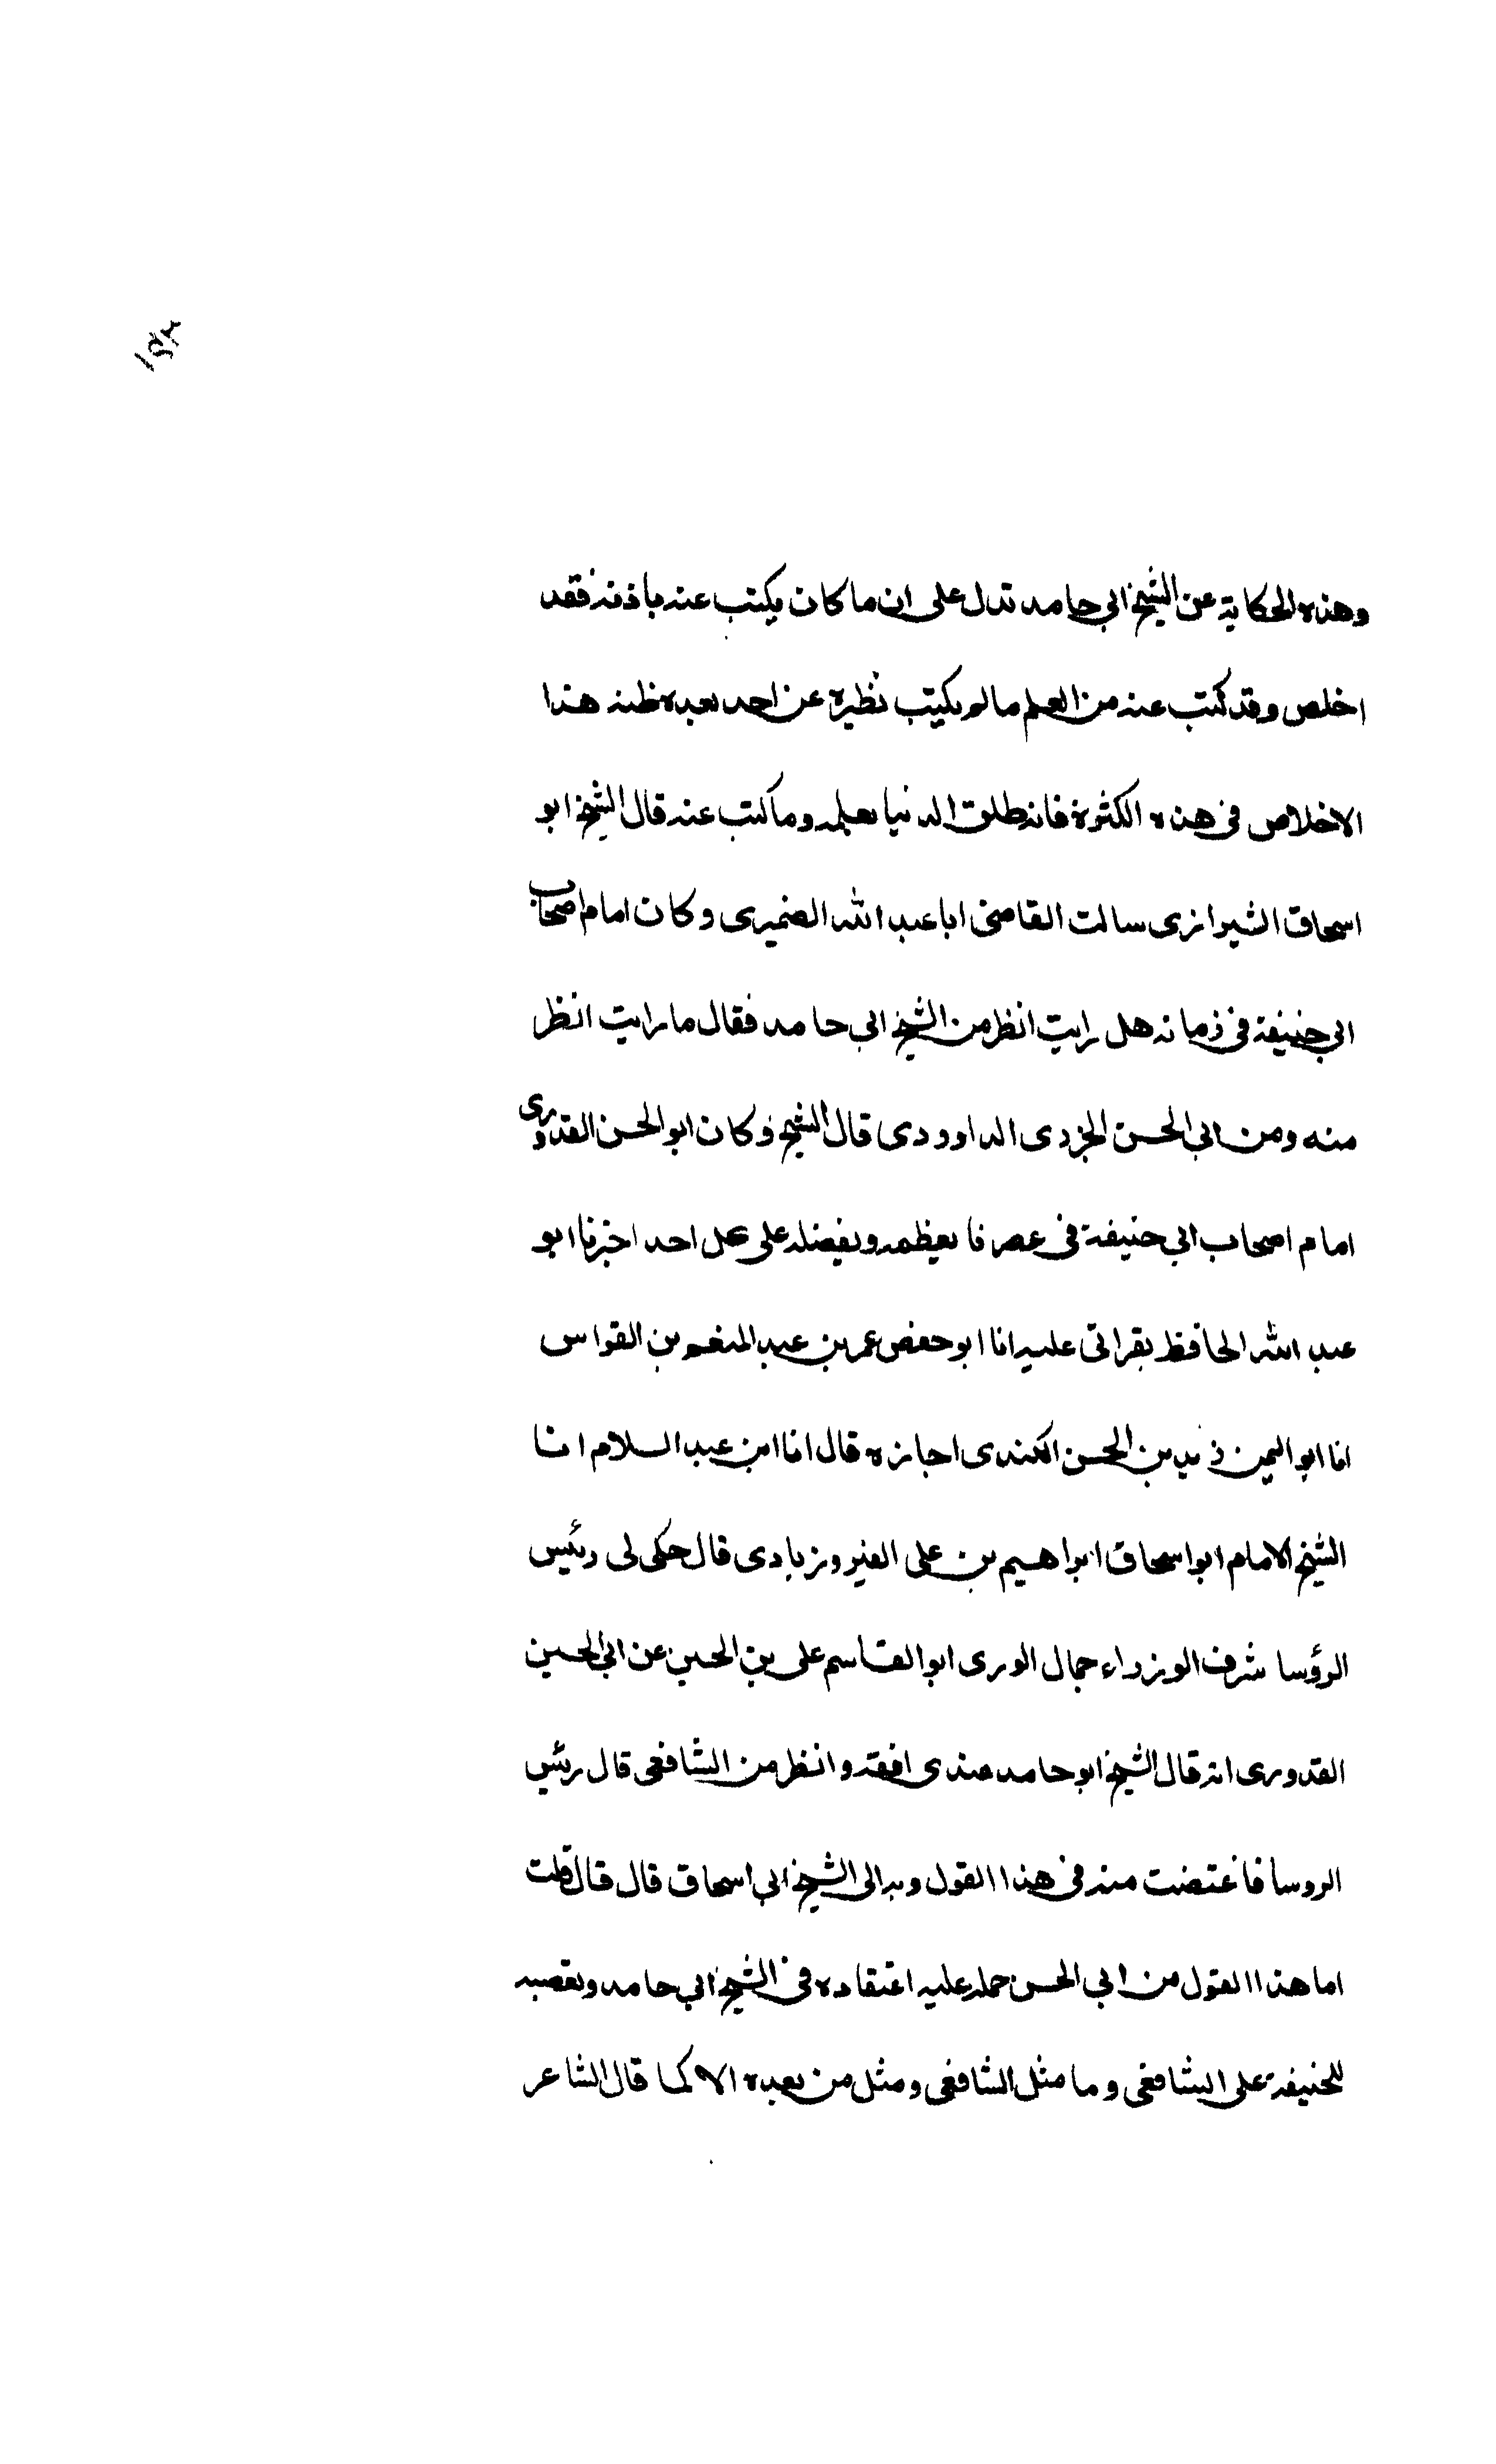 وهذه الحكاية عن الشيخ ابي حامد تدل على ان ما كان يكتب عنه باذنه فقد
اخلص وقد كتب عنه من العلم ما لم يكتب نظيره عن احد بعده فلعله هذا
الاخلاص في هذه الكثرة فانه طلق الدنيا بعلمه وما كتب عنه قال الشيخ ابو
اسحاق الشيرازى سالت القاضى ابا عبد الله الصميرى وكان امام اصحاب
ابي حنيفة في زمانه هل رايت انظر من الشيخ ابي حامد فقال ما رايت انظر
منه ومن ابي الحسن الجزدى الداوودى قال الشيخ وكان ابو الحسن القدورى
امام اصحاب ابي حنيفة في عصرنا يعظمه ويفضله على كل احد اخبرنا ابو
عبد الله الحافظ بقراتى عليه انا ابو حفص عمر بن عبد المنعم بن القواس
انا ابو اليمن زيد بن الحسن الكندى اجازة قال انا ابن عبد السلام انا
الشيخ الامام ابو اسحاق ابراهيم بن على الفيروزبادى قال حكى لى رئيس
الرؤسا شرف الوزراء جمال الورى ابو القاسم على بن الحسين عن ابي الحسين
القدورى انه قال الشيخ ابو حامد عندى افقه وانظر من الشافعى قال رئيس
الروسا فاغتضت منه في هذا القول وبه الى الشيخ ابي اسحاق قال قال قلت
اما هذا القول من ابي الحسن حمله عليه اعتقاده في الشيخ ابي حامد وتعصبه
للحنيفة على الشافعى وما مثل الشافعى ومثل من بعده الا كما قال الشاعر